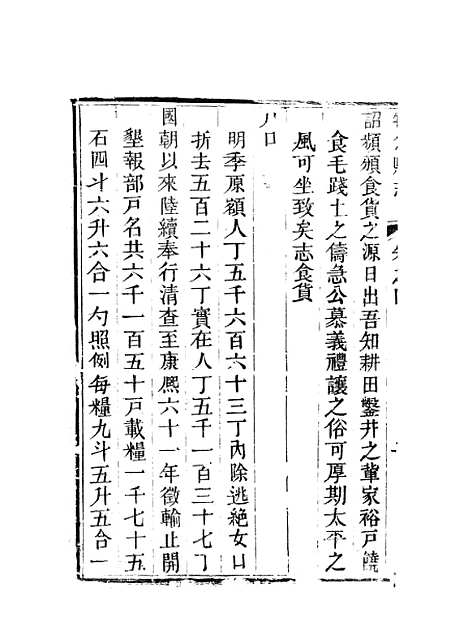 詔頻頒食貨之源日出吾知耕田鑿井之軰家裕戸饒
食毛踐土之儔急公慕義禮讓之俗可厚期太平之
風可坐致矣志食貨
戸口
明季原額人丁五千六百六十三丁內除逃絶女口
折去五百二十六丁實在人丁五千一百三十七丁
國朝以來陸續奉行清查至康熈六十一年徵輸止開
墾報部戸名共六千一百五十戸載糧一千七十五
石四斗六升六合一勺照例每糧九斗五升五合一